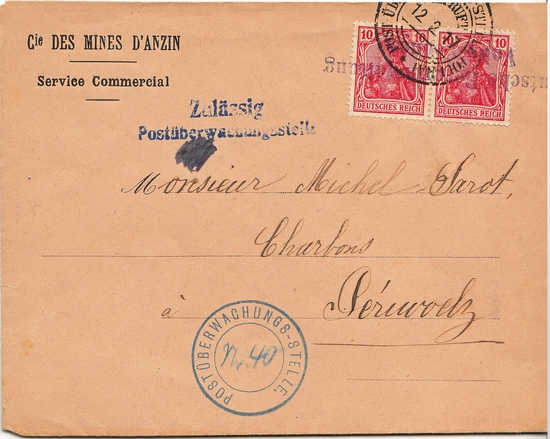 Cie DES MINES D'ANZIN
Service Commercial
Zulässig
Postüberwachungsstelle
10 10
DEUTSCHES REICH DEUTSCHES REICH
12 2
Monsieur Michel Sarot,
Charbons
à Péruwelz
POSTÜBERWACHUNGS-STELLE.
No. 40